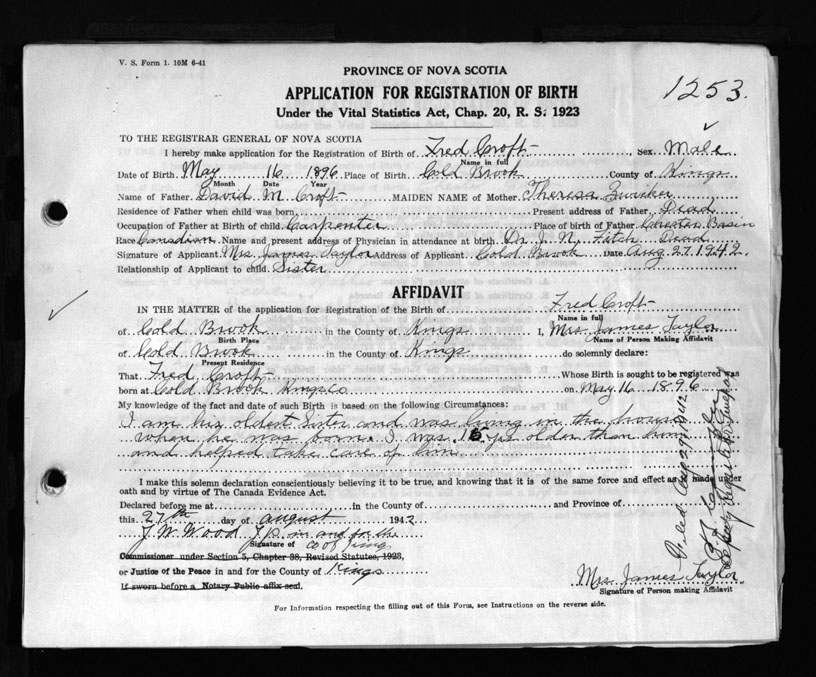 V. S. Form 1. 10M 6-41
PROVINCE OF NOVA SCOTIA
1253.
APPLICATION FOR REGISTRATION OF BIRTH
Under the Vital Statistics Act, Chap. 20, R. S. 1923
TO THE REGISTRAR GENERAL OF NOVA SCOTIA
I hereby make application for the Registration of Birth of Fred Croft, Sex Male
Name in full
Date of Birth May 16 1896 Place of Birth Cold Brook County of Kings
Month Date Year
Name of Father David M Croft MAIDEN NAME of Mother Theresa Zwicker
Residence of Father when child was born Present address of Father Dead
Occupation of Father at Birth of child Carpenter Place of birth of Father Chester Basin
Race Canadian Name and present address of Physician in attendance at birth Dr. J. N. Fitch Dead
Signature of Applicant Mrs James Taylor Address of Applicant Cold Brook Date Aug 27. 1942.
Relationship of Applicant to child Sister
AFFIDAVIT
IN THE MATTER of the application for Registration of the Birth of Fred Croft
Name in full
of Cold Brook in the County of Kings I, Mrs James Taylor
Birth Place Name of Person Making Affidavit
of Cold Brook in the County of Kings do solemnly declare:
Present Residence
That Fred Croft Whose Birth is sought to be registered was
born at Cold Brook Kings Co on May 16 1896
My knowledge of the fact and date of such Birth is based on the following Circumstances:
I am his oldest Sister and was living in the house
when he was born. I was 15 yrs older than him
and helped take care of him
I make this solemn declaration conscientiously believing it to be true, and knowing that it is of the same force and effect as if made under
oath and by virtue of The Canada Evidence Act.
Declared before me at in the County of and Province of
this 27th day of august 1942
J. W. Wood J.P. in and for the
Signature of Co of Kings
Commissioner under Section 5, Chapter 38, Revised Statutes, 1923,
or Justice of the Peace in and for the County of Kings
If sworn before a Notary Public affix seal.
Mrs. James Taylor
Signature of Person making Affidavit
For Information respecting the filling out of this Form, see Instructions on the reverse side.
Deputy Registrar General